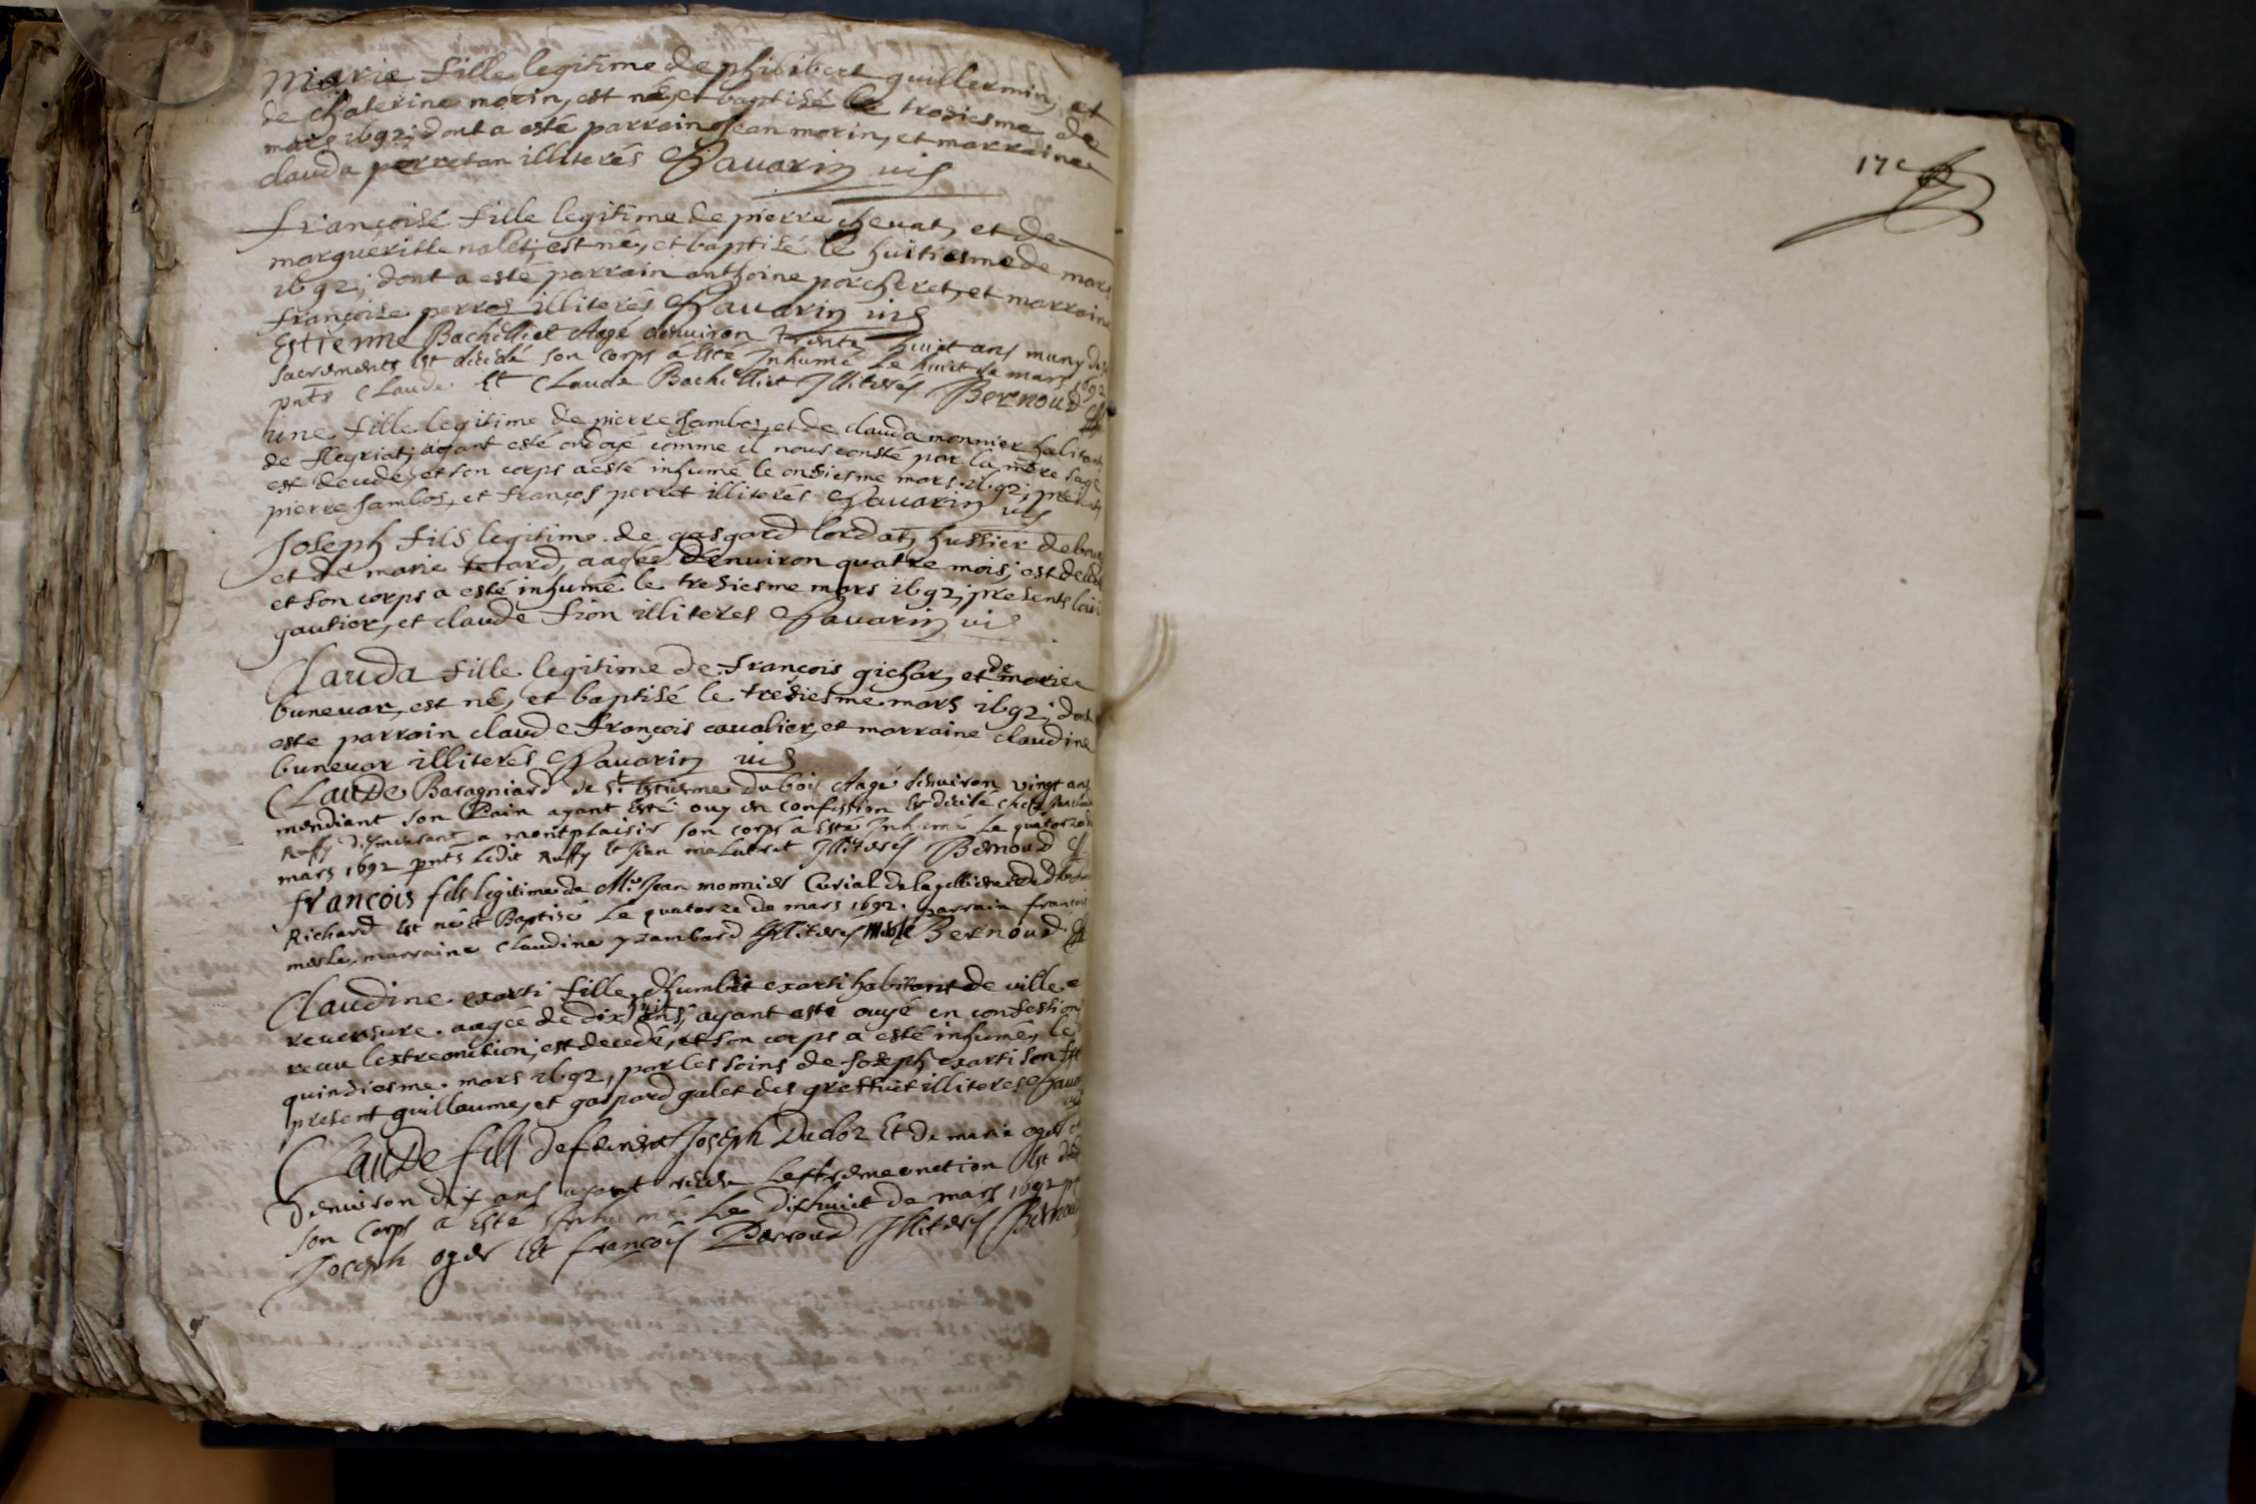 Marie fille legitime de philibert guillermin, et
de chaterine morin, est né, et baptisé le troisiesme de
mars 1692; dont a esté parrain Jean morin, et marraine
clauda perretan illiterés Chavarin vic
françoise fille legitime de pierre chevat, et de
margueritte nalet; est né, et baptisé le huitiesme de mars
1692; dont a esté parrain anthoine porcheret, et marraine
françoise perros illiterés Chavarin vic
Estienne Bachilliet Aagé denviron trente huict ans muny des
sacrements Est décédé son corps a Esté Inhumé Le huict de mars 1692
pnts Claude Et Claude Bachilliet Illiterés Bernoud
une fille legitime de pierre Jambos, et de clauda monnier habitants
de fleyriat; ayant esté ondoyé comme il nous consté par la mere sage
est decude, et son corps a esté inhumé le onsiesme mars 1692; presents
pierre Jambos, et françois perret illiterés Chavarin vic
Joseph fils legitime de gaspard lordat, hussier de bourg
et de marie tetard, aagée denviron quatre mois; est decude
et son corps a esté inhumé le tresiesme mars 1692; presents loui
gautier, et claude fion illiteres Chavarin vic
Clauda fille legitime de françois gichar, et de marie
bunevar, est né, et baptisé le tresiesme mars 1692; dont
este parrain claude françois cavalier, et marraine claudine
bunevar illiterés Chavarin vic
Claude Baragniard de St Estienne Dubois Aagé denviron vingt ans
mendiant son Pain ayant Esté ouy en confession Est décédé chez
Ruffy a montplaisir son corps a Esté Inhumé Le quatorze de
mars 1692 pnts Ledit Ruffy Et Jean malatret Illiterés Bernoud
françois fils legitime de Mre Jean monnier Curial
Richard Est né et Baptisé Le quatorze de mars 1692. parrain françois
mesle, marraine Claudine Illiterés Mesle Bernoud
Claudine exarti fille d'humbert exarti habitant de ville
reversure. aagée de dix huit ans, ayant esté ouyé en confession
receu lextreonction, est decedé, et son corps a esté inhumé, le
quindiesme. mars 1692, par les soins de Joseph exarti son fre
present guillaume, et gaspard galet des greffuet illiteres Chavar
vic
Claude fils de feu Joseph Duclos Et de marie oger
Denviron dix ans ayant receu Lextremeonction Est déc
son Corps a Esté Inhumé Le dixhuict de mars 1692 pn
Joseph oger Et françois Darroud Illiterés Bernoud